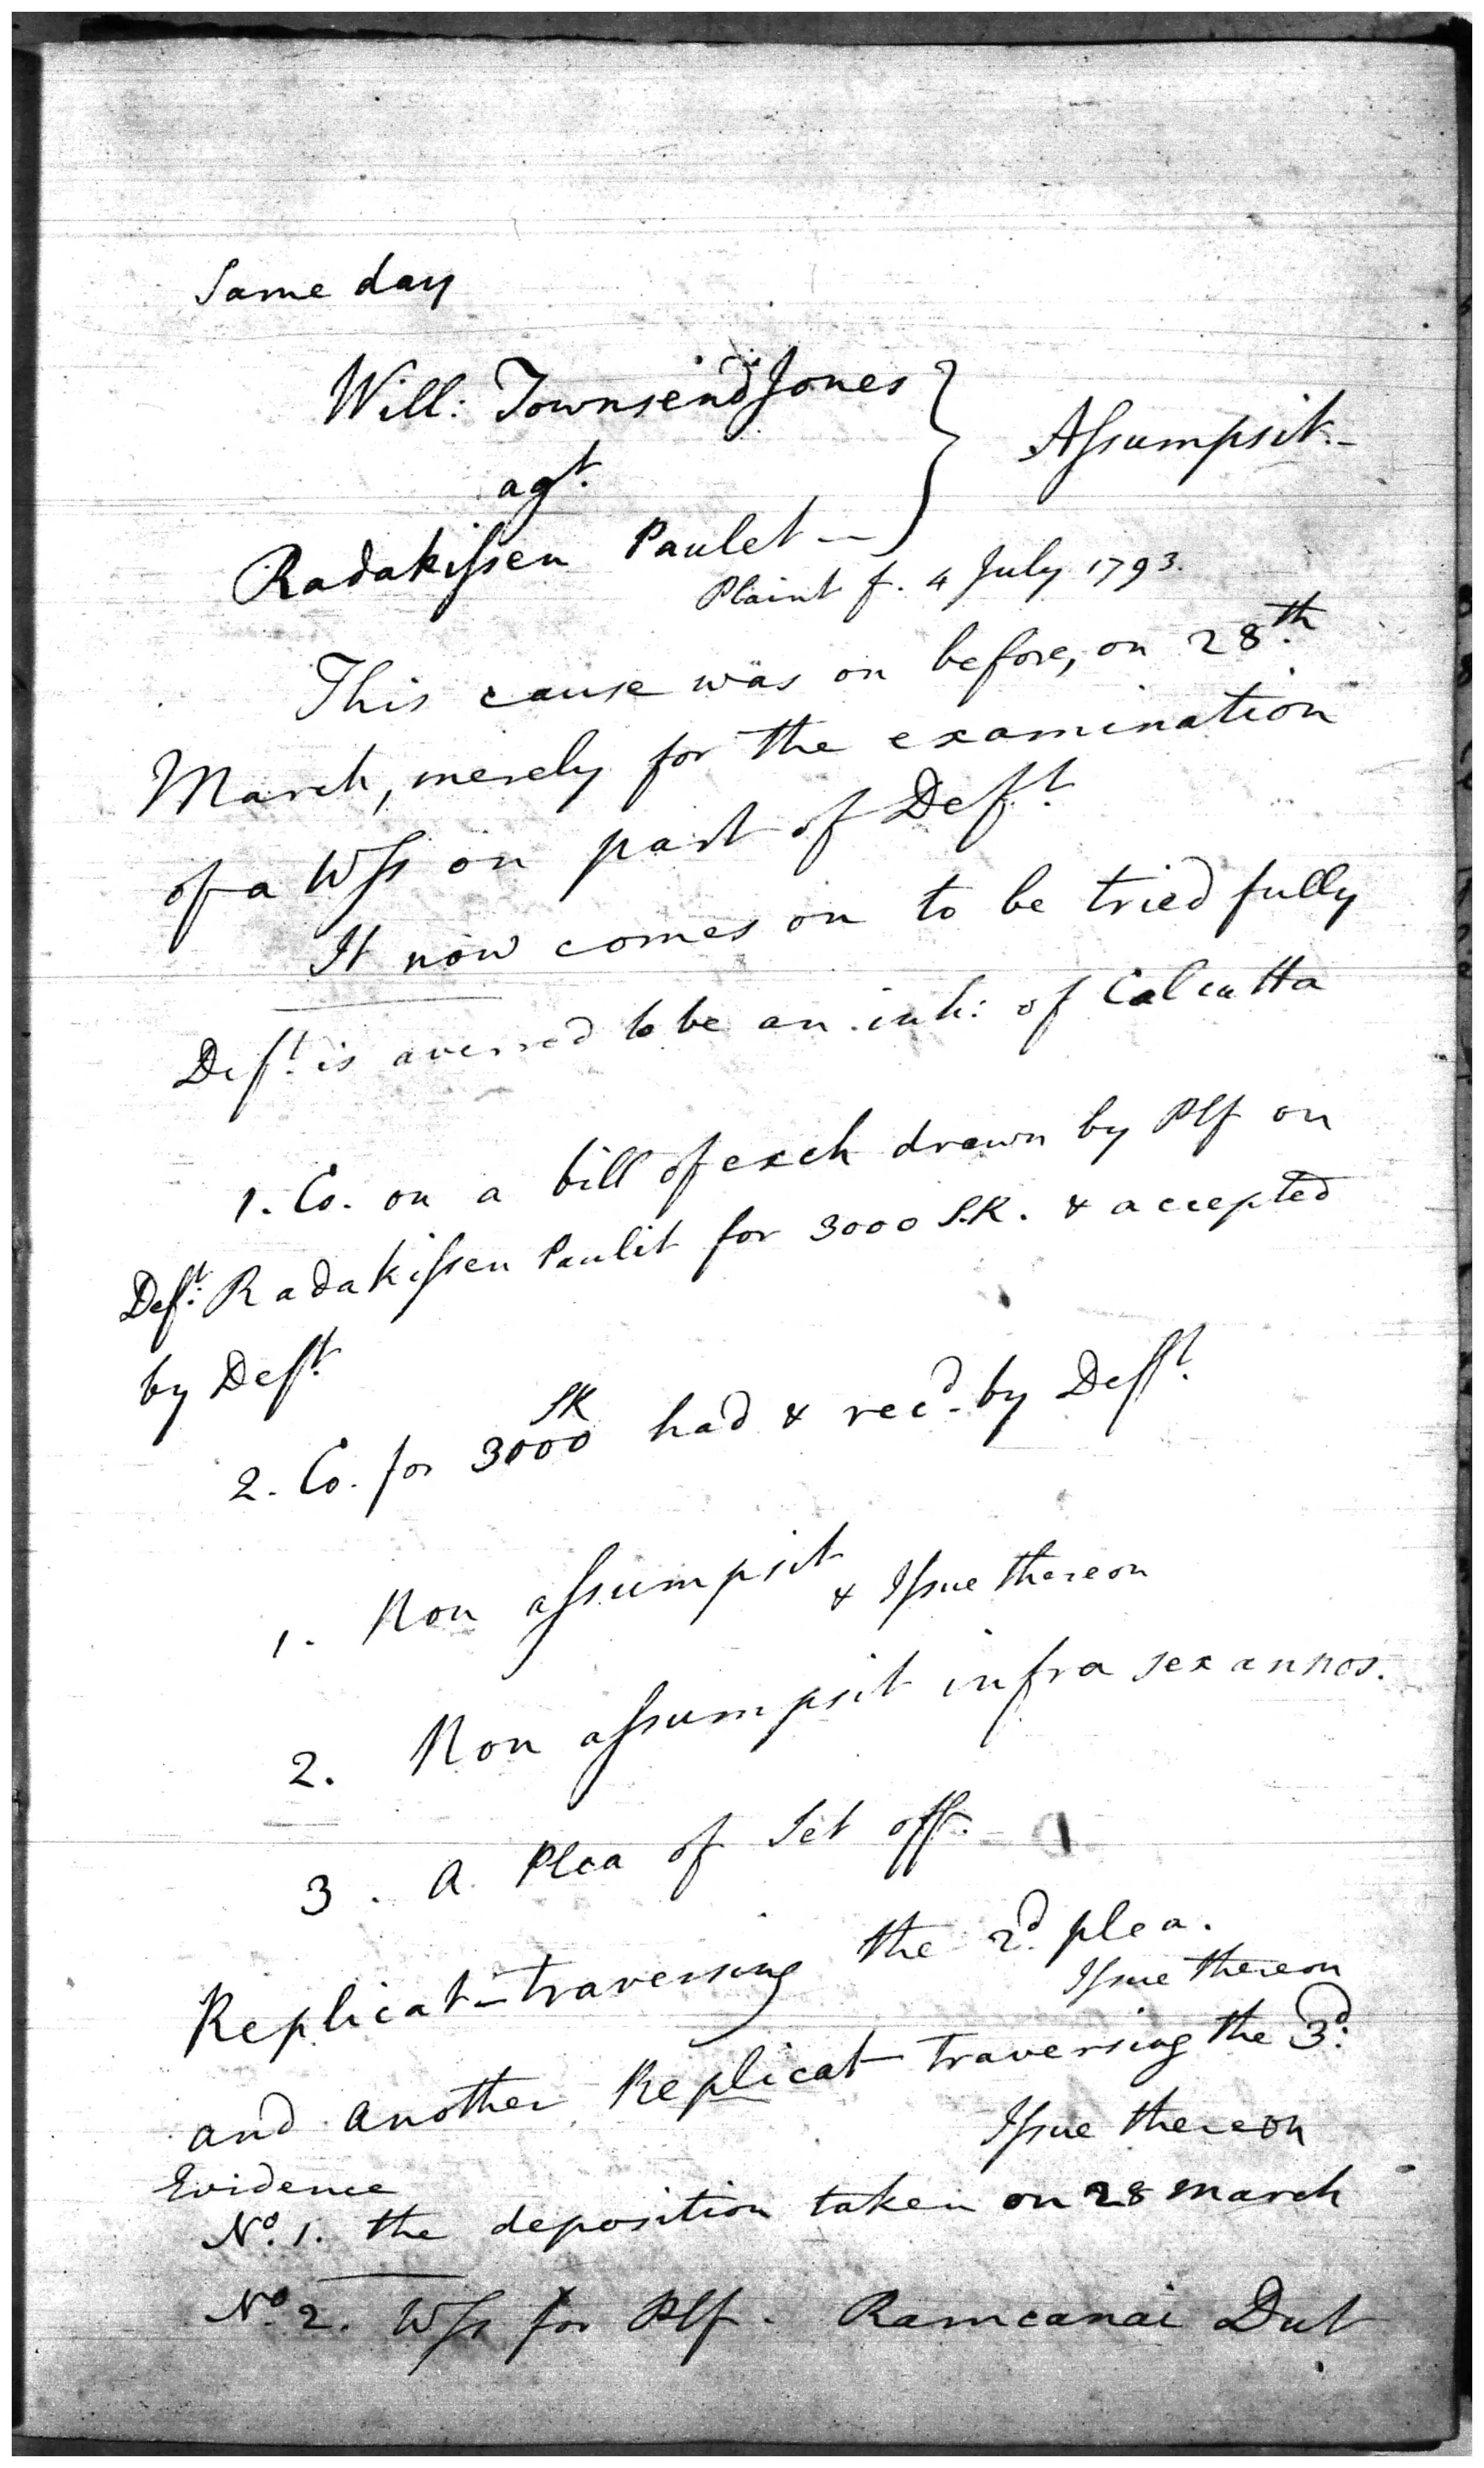 Same day
Will: Townsend Jones
agt.
Radakissen Paulet —
Assumpsit. —
Plaint f. 4 July 1793.
This cause was on before, on 28th
March, merely for the examination
of a Wss on part of Deft.
It now comes on to be tried fully
Deft. is averred to be an inh: of Calcutta
1. Co. on a bill of exch drawn by Plf on
Deft: Radakissen Paulit for 3000 S.R. & accepted
by Deft.
2. Co. for 3000 SR had & recd. by Deft.
1. Non assumpsit & Issue thereon
2. Non assumpsit infra sex annos.
3. A Plea of Set off. —
Replicat — traversing the 2d. plea.
Issue thereon
and another Replicat traversing the 3d:
Issue thereon
Evidence
No. 1. the deposition taken on 28 March
No. 2. Wss for Plf. Ramcanai Dut